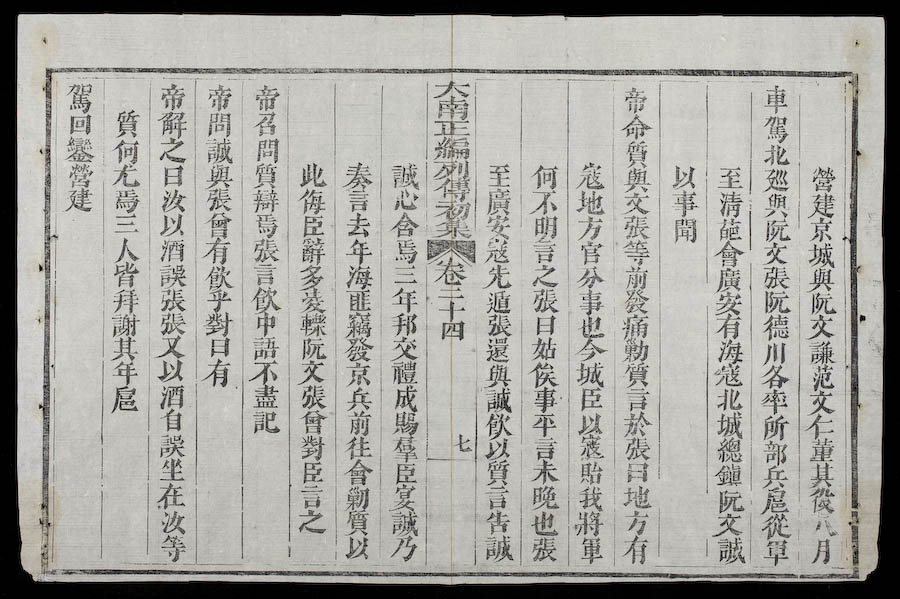 營建京城與阮文謙范文仁董其役八月
車駕北廵與阮文張阮德川各率所部兵扈從軍
至淸葩會廣安有海寇北城總鎮阮文誠
以事聞
帝命質與文張等前發痛勦質言於張曰地方有
寇地方官分事也今城臣以寇貽我將軍
何不明言之張曰姑俟事平言未晚也張
至廣安寇先遁張還與誠飮以質言告誠
大南正編列傳初集 卷二十四 七
誠心含焉三年邦交禮成賜羣臣宴誠乃
奏言去年海匪竊發京兵前往會勦質以
此侮臣辭多憂轢阮文張曾對臣言之
帝召問質辯焉張言飮中語不盡記
帝問誠與張曾有飮乎對曰有
帝解之曰汝以酒誤張張又以酒自誤坐在汝等
質何尤焉三人皆拜謝其年扈
駕回鑾營建